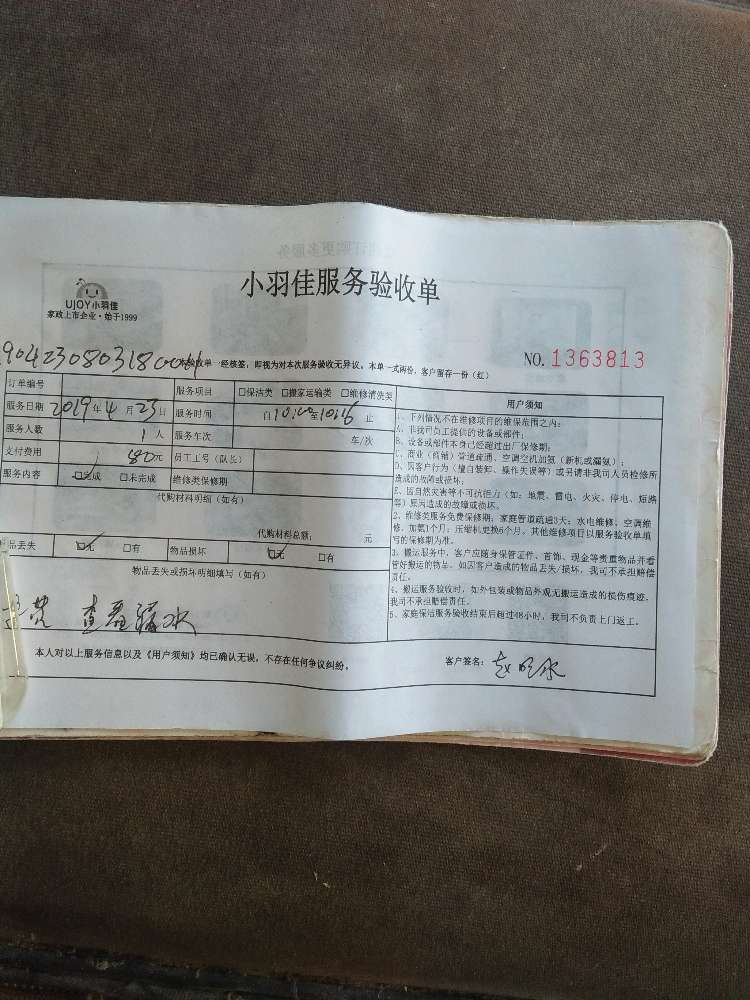 小羽佳服务验收单
UJOY小羽佳
家政上市企业·始于1999
本验收单一经核签，即视为对本次服务验收无异议。本单一式两份，客户留存一份（红）
NO. 1363813
订单编号 服务项目 □保洁类 □搬家运输类 □维修清洗类
服务日期 2019年4月23日 服务时间 自10:00至10:16止
服务人数 1人 服务车次 车/次
支付费用 180元 员工工号（队长）
服务内容 □完成 □未完成 维修类保修期
代购材料明细（如有）
代购材料总额： 元
物品丢失 □无 □有 物品损坏 □无 □有
物品丢失或损坏明细填写（如有）
查漏水
本人对以上服务信息以及《用户须知》均已确认无误，不存在任何争议纠纷。
客户签名：
用户须知
1、下列情况不在维修项目的维保范围之内：
A、非我司员工提供的设备或部件；
B、设备或部件本身已经超过出厂保修期；
C、商业（商铺）管道疏通、空调空机加氨（新机或漏氨）；
D、因客户行为（擅自装卸、操作失误等）或另请非我司人员检修所
造成的故障或损坏；
E、因自然灾害等不可抗拒力（如：地震、雷电、火灾、停电、短路
等）原因造成的故障或损坏。
2、维修类服务免费保修期：家庭管道疏通3天；水电维修、空调维
修、加氨1个月；压缩机更换6个月。其他维修项目以服务验收单填
写的保修期为准。
3、搬运服务中，客户应随身保管证件、首饰、现金等贵重物品并看
管好搬运的物品。如因客户造成的物品丢失/损坏，我司不承担赔偿
责任。
4、搬运服务验收时，如外包装或物品外观无搬运造成的损伤痕迹，
我司不承担赔偿责任。
5、家庭保洁服务验收结束后超过48小时，我司不负责上门返工。